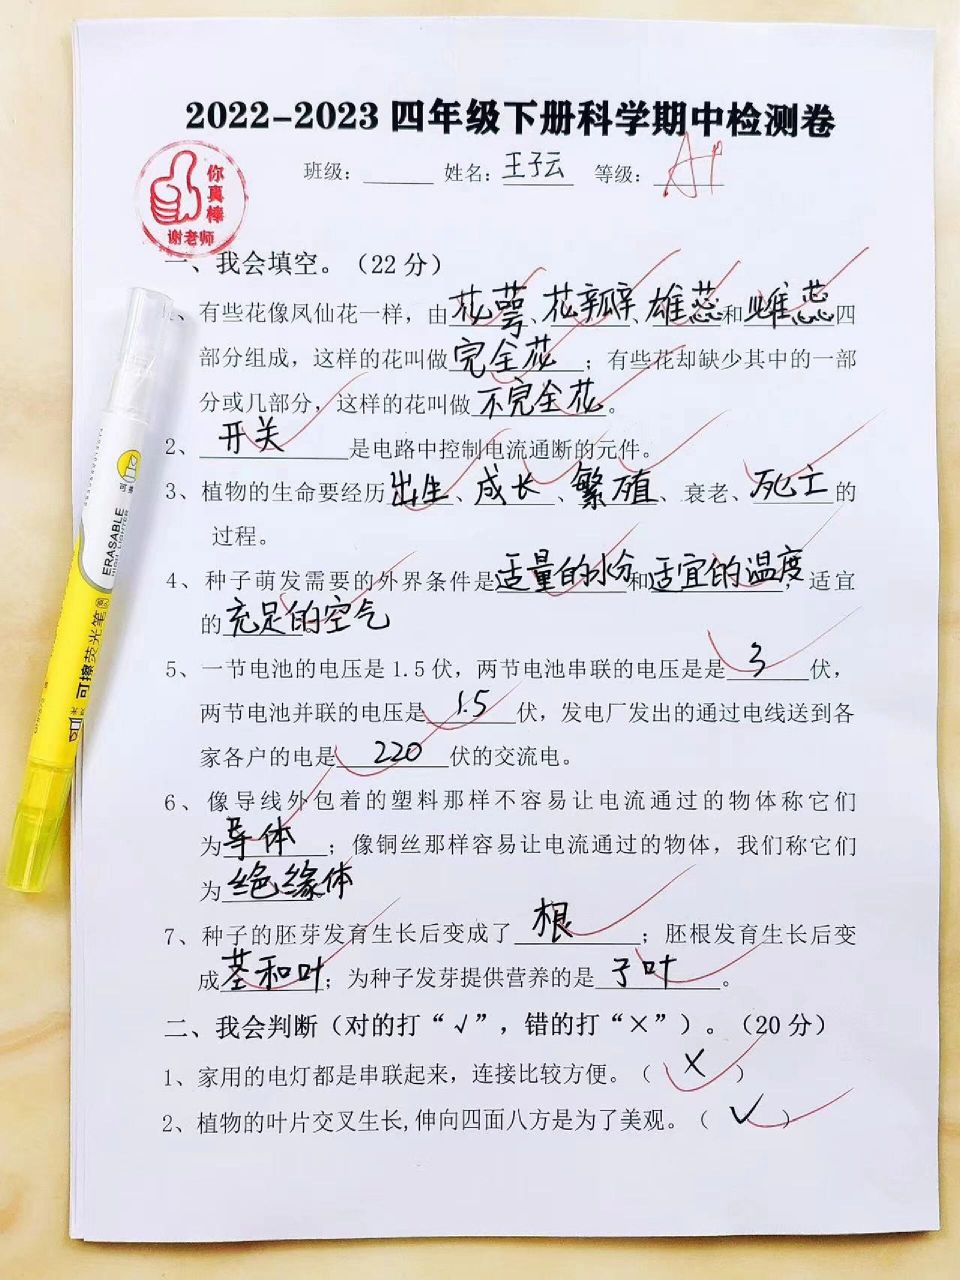 2022-2023 四年级下册科学期中检测卷
班级：______ 姓名：王子云 等级：A+
你真棒
谢老师
一、我会填空。（22 分）
1、有些花像凤仙花一样，由花萼、花瓣、雄蕊和雌蕊四
部分组成，这样的花叫做完全花；有些花却缺少其中的一部
分或几部分，这样的花叫做不完全花。
2、开关是电路中控制电流通断的元件。
3、植物的生命要经历出生、成长、繁殖、衰老、死亡的
过程。
4、种子萌发需要的外界条件是适量的水分和适宜的温度，适宜
的充足的空气
5、一节电池的电压是 1.5 伏，两节电池串联的电压是是3伏，
两节电池并联的电压是1.5伏，发电厂发出的通过电线送到各
家各户的电是220伏的交流电。
6、像导线外包着的塑料那样不容易让电流通过的物体称它们
为导体；像铜丝那样容易让电流通过的物体，我们称它们
为绝缘体
7、种子的胚芽发育生长后变成了根；胚根发育生长后变
成茎和叶；为种子发芽提供营养的是子叶。
二、我会判断（对的打“√”，错的打“×”）。（20 分）
1、家用的电灯都是串联起来，连接比较方便。（ × ）
2、植物的叶片交叉生长,伸向四面八方是为了美观。（ √ ）
ERASABLE
HIGH LIGHTER
可擦荧光笔